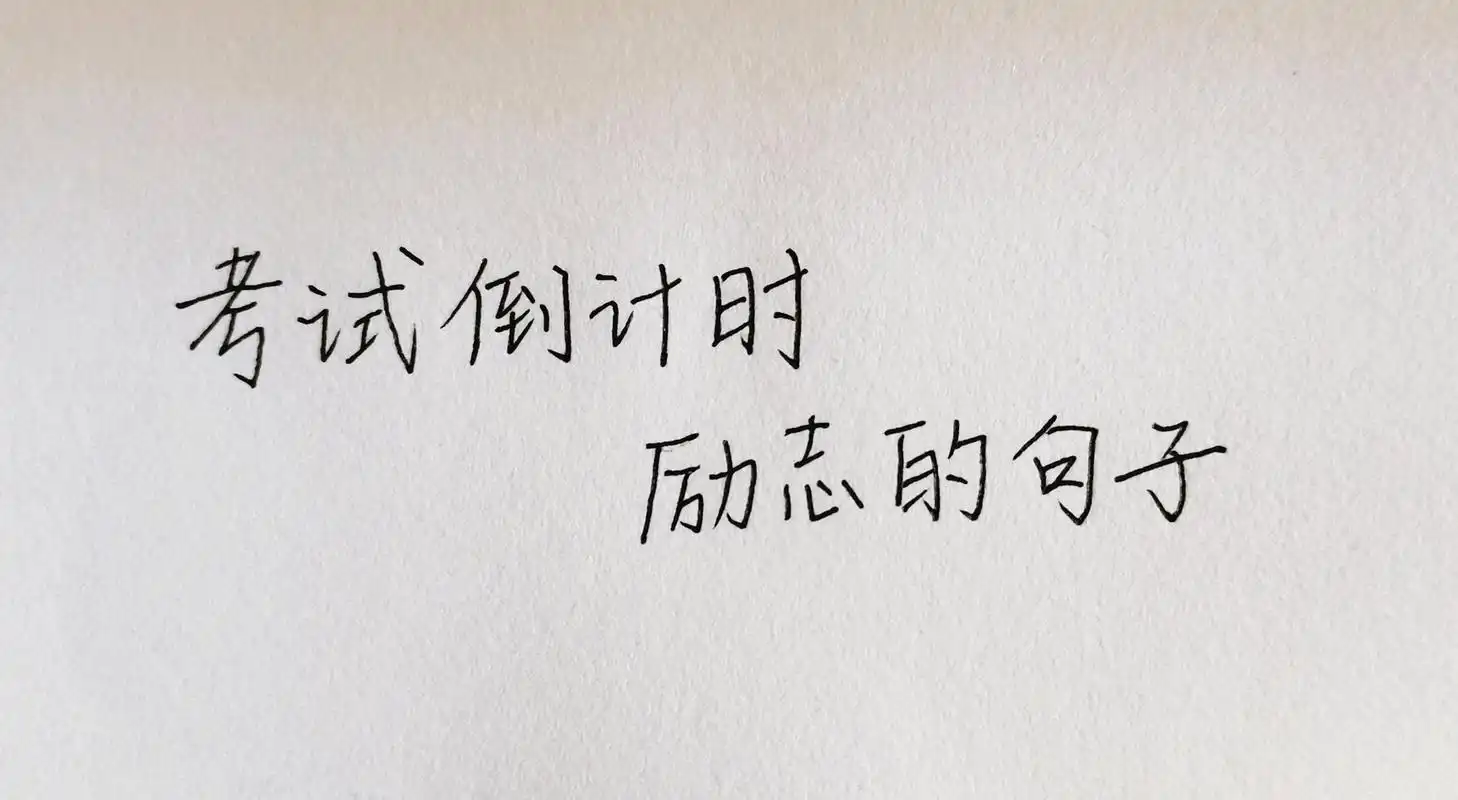 考试倒计时
励志的句子